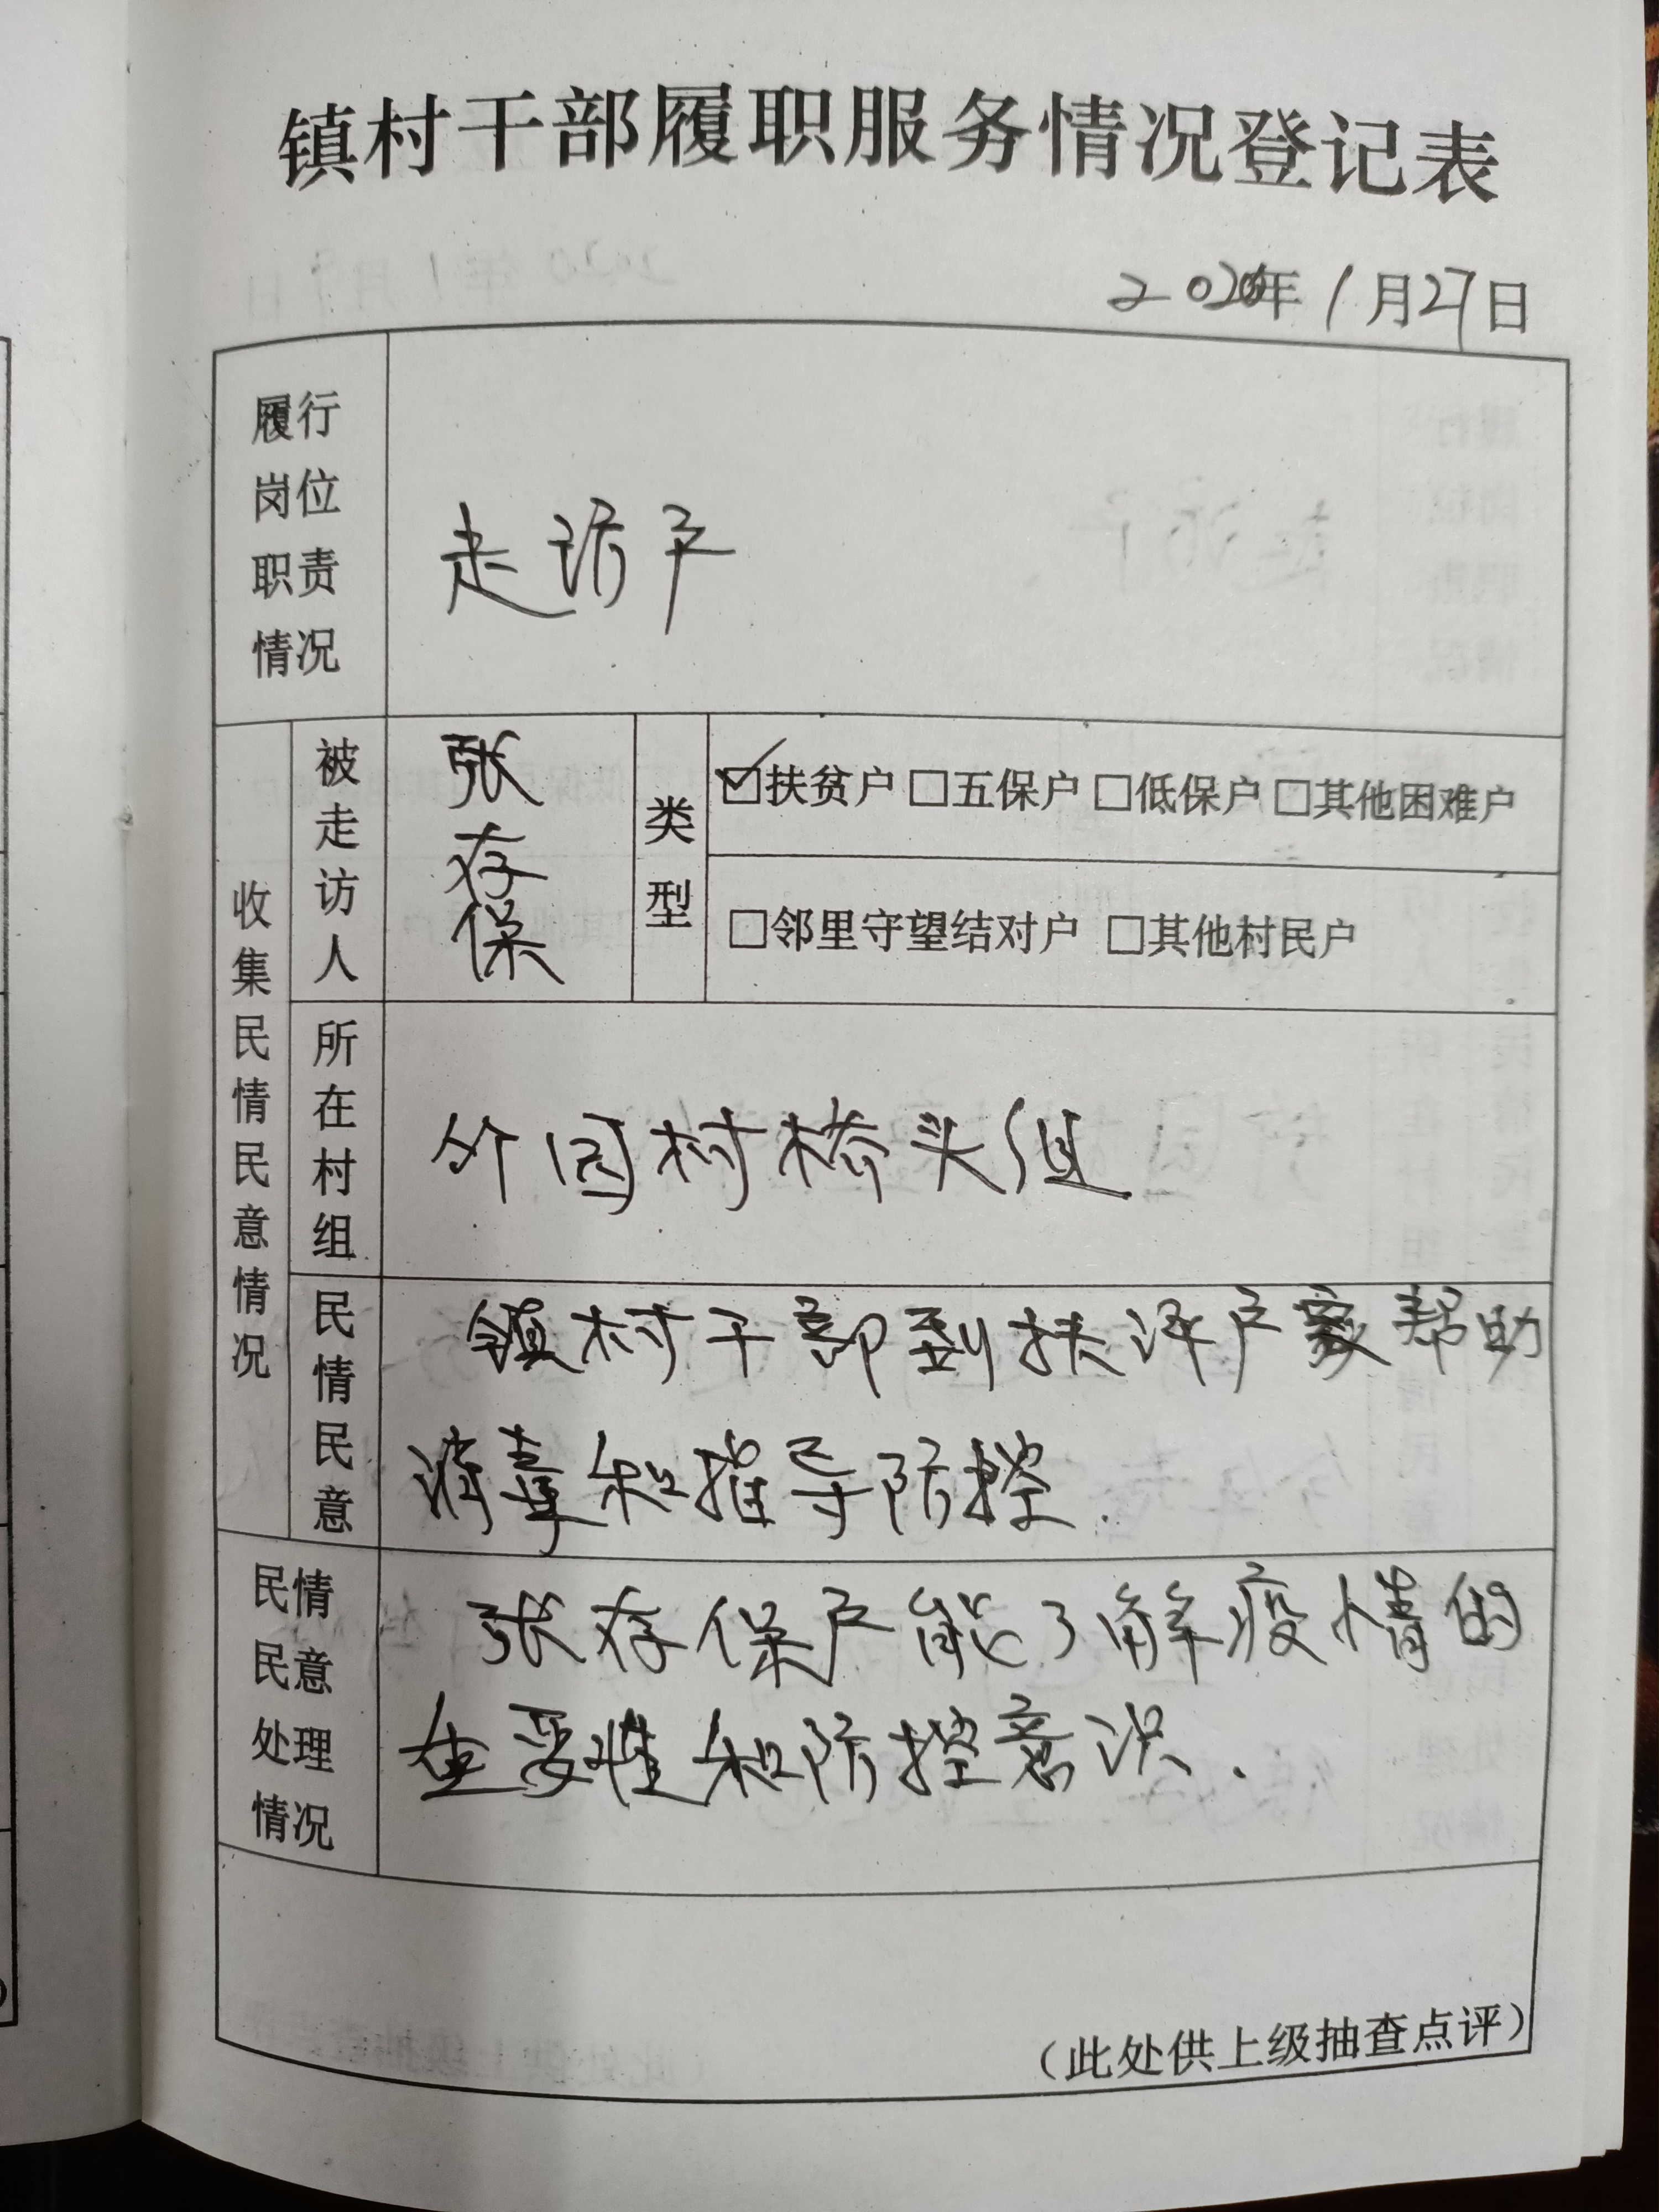 镇村干部履职服务情况登记表
2020年1月27日
履行
岗位
职责
情况
走访户
收集民情民意情况
被走访人
张存保
类型
☑扶贫户 □五保户 □低保户 □其他困难户
□邻里守望结对户 □其他村民户
所在村组
外园村桥头组
民情民意
镇村干部到扶评户家帮助
消毒和指导防控.
民情
民意
处理
情况
张存保户能了解疫情的
重要性和防控意识.
(此处供上级抽查点评)